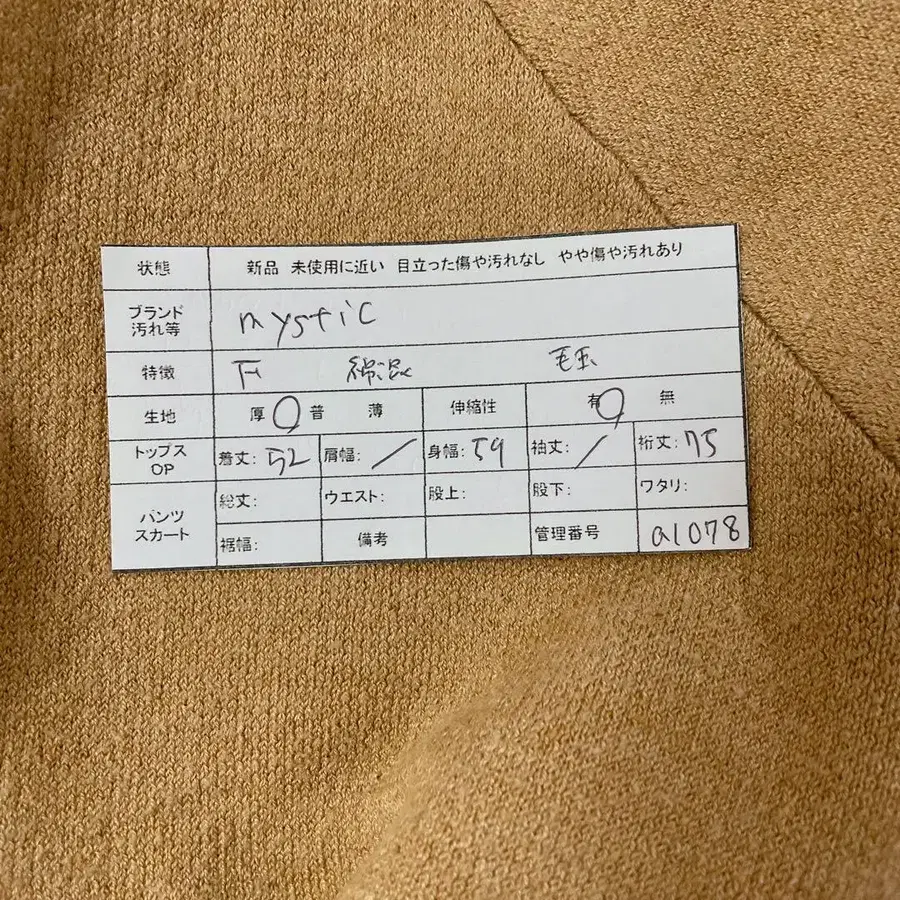 状態 新品 未使用に近い 目立った傷や汚れなし やや傷や汚れあり
ブランド mystic
汚れ等
特徴 F 毛玉
生地 厚 普 薄 伸縮性 有 無
トップス 着丈: 52 肩幅: / 身幅: 59 袖丈: / 裄丈: 75
OP
パンツ 総丈: ウエスト: 股上: 股下: ワタリ:
スカート 裾幅: 備考 管理番号 a1078